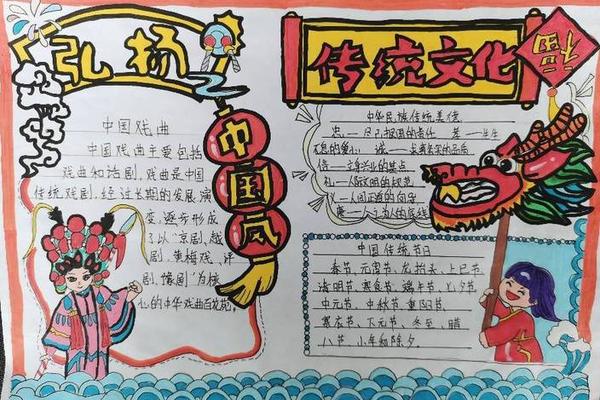 弘扬
传统文化
福
中国风
中国戏曲
中国戏曲主要包括
戏曲和话剧,戏曲是中国
传统戏剧,经过长期的发展演
变,逐步形成
了以"京剧、越
剧、黄梅戏、评
剧、豫剧"为核
心的中华戏曲百花苑。
中华民族传统美德
忠—尽己报国的责任
诚—求真务实的品质
信—立身兴业的基点
中国传统节日
春节、元宵节、龙抬头、上巳节
清明节、寒食节、端午节、七夕节
中元节、中秋节、重阳节、
寒衣节、下元节、冬至、腊
八节、小年和除夕